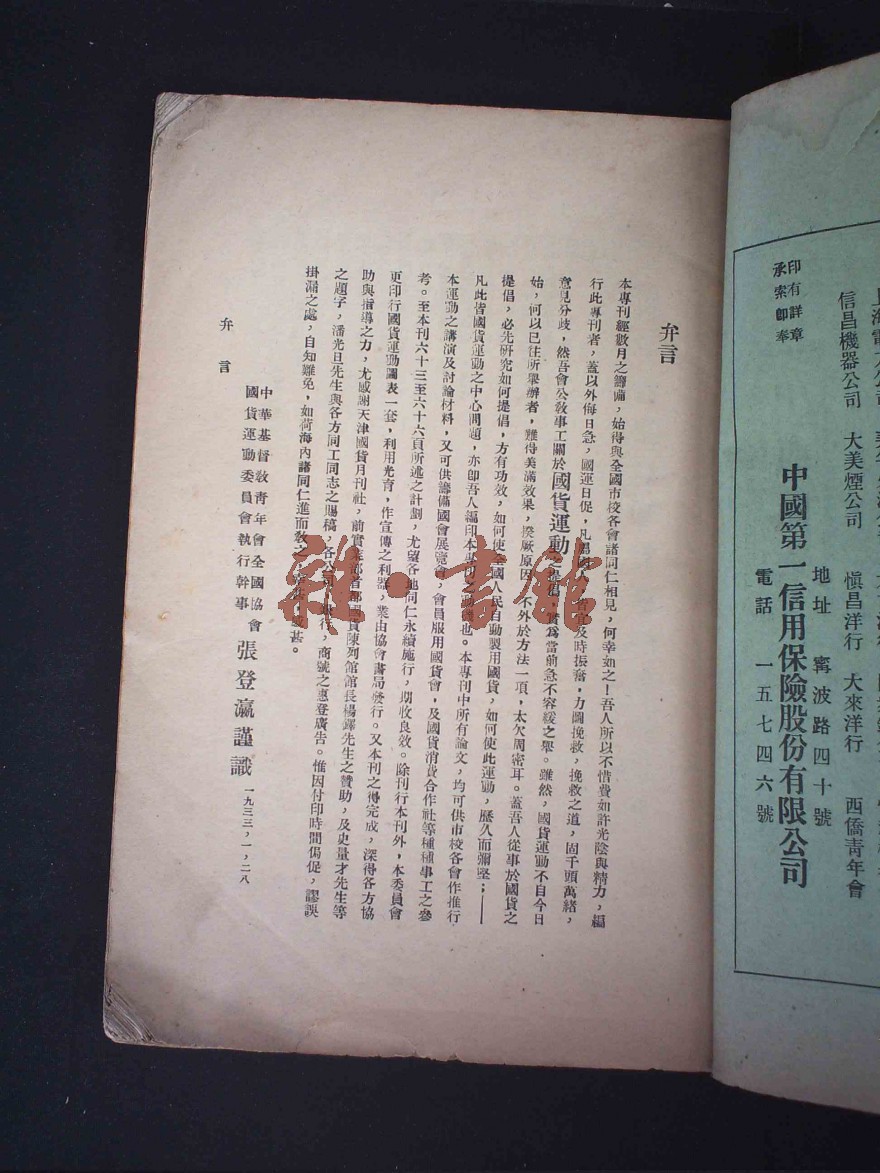 弁言
本專刊經數月之籌備，始得與全國市校各會諸同仁相見，何幸如之！吾人所以不惜費如許光陰與精力，編
行此專刊者，蓋以外侮日急，國運日促，凡屬國人，皆宜及時振奮，力圖挽救，挽救之道，固千頭萬緒，
意見分歧，然吾會公敎事工關於國貨運動之提倡，實爲當前急不容緩之舉。雖然，國貨運動不自今日
始，何以已往所舉辦者，難得美滿效果，揆厥原因，不外於方法一項，太欠周密耳。蓋吾人從事於國貨之
提倡，必先硏究如何提倡，方有功效，如何使全國人民自動製用國貨，如何使此運動，歷久而彌堅；——
凡此皆國貨運動之中心問題，亦卽吾人編印本專刊之動機也。本專刊中所有論文，均可供市校各會作推行
本運動之講演及討論材料，又可供籌備國貨展覽會，會員服用國貨會，及國貨消費合作社等種種事工之參
考。至本刊六十三至六十六頁所述之計劃，尤望各地同仁永續施行，期收良效。除刊行本刊外，本委員會
更印行國貨運動圖表一套，利用光育，作宣傳之利器，業由協會書局發行。又本刊之得完成，深得各方協
助與指導之力，尤感謝天津國貨月刊社，前實業部首都國貨陳列館館長楊鐸先生之贊助，及史量才先生等
之題字，潘光旦先生與各方同工同志之賜稿，各公司 行，商號之惠登廣告。惟因付印時間侷促，謬誤
掛漏之處，自知難免，如荷海內諸同仁進而敎之， 甚。
中華基督敎靑年會全國協會
國貨運動委員會執行幹事 張登瀛謹識 一九三三，一，二八
弁言
印有詳章
承索卽奉
中國第一信用保險股份有限公司
地址 寗波路四十號
電話 一五七四六號
信昌機器公司 大美煙公司 愼昌洋行 大來洋行 西僑靑年會
雜·書館